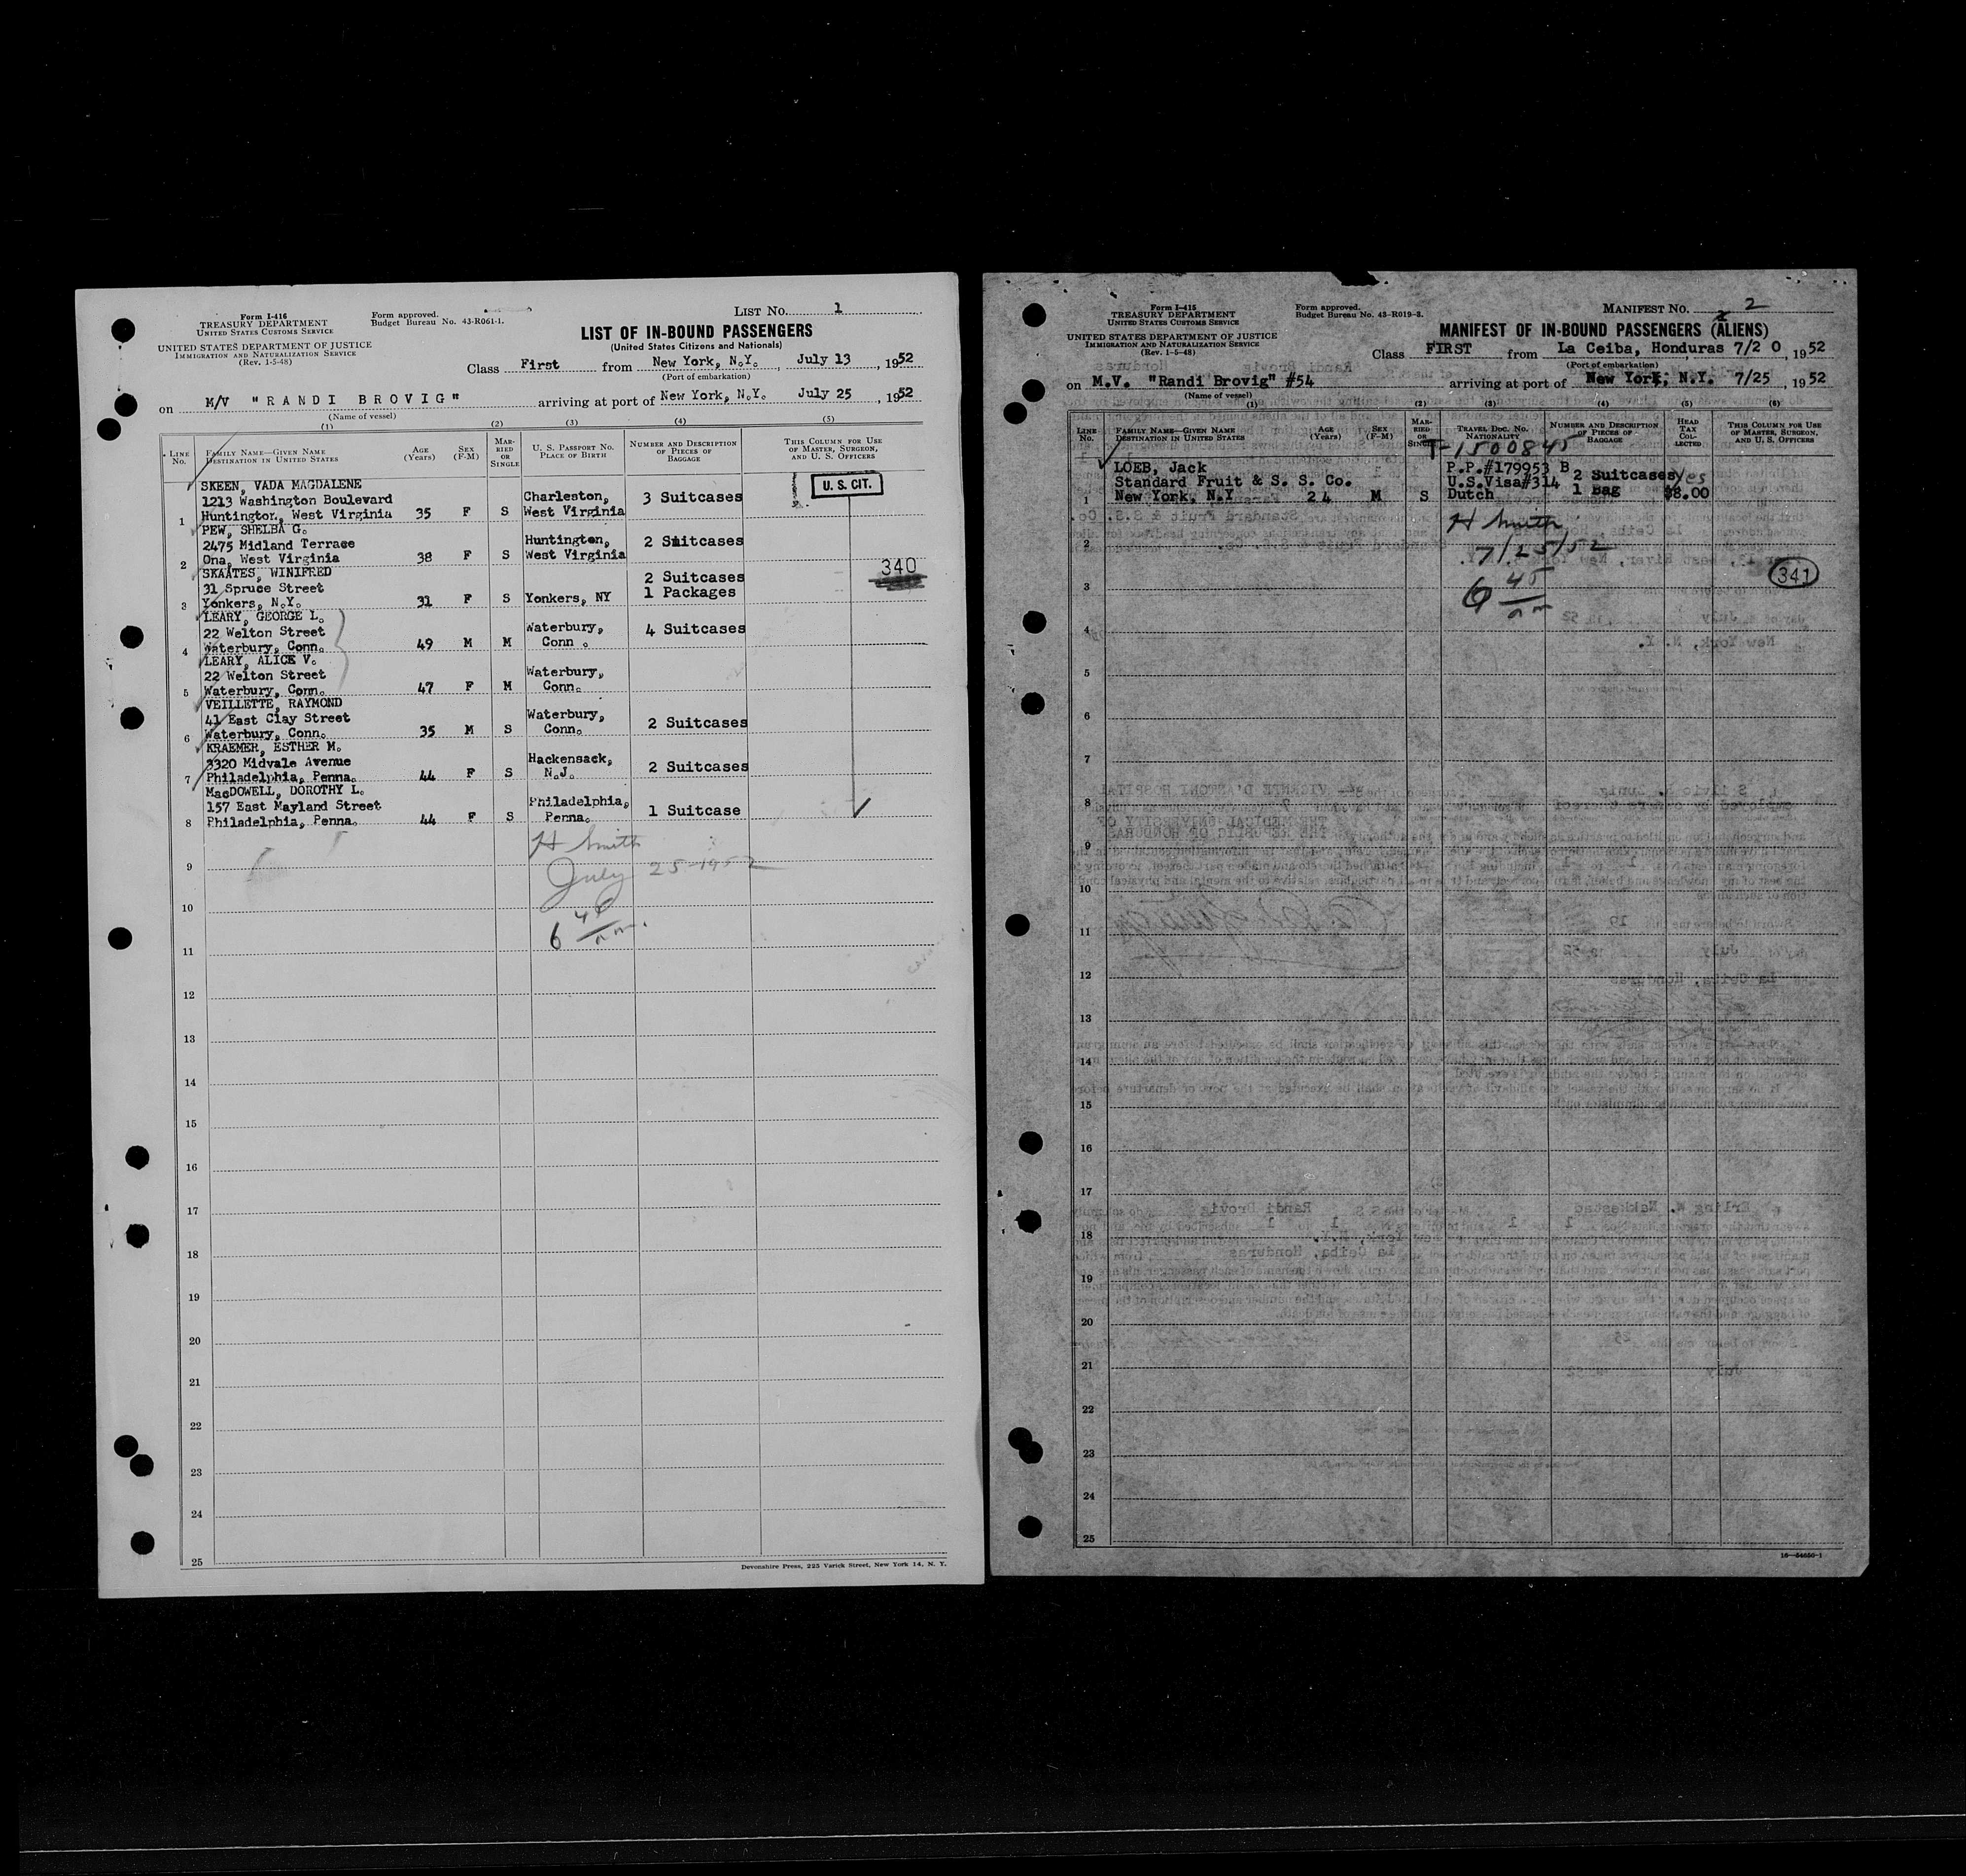 Form I-416
TREASURY DEPARTMENT
UNITED STATES CUSTOMS SERVICE
UNITED STATES DEPARTMENT OF JUSTICE
IMMIGRATION AND NATURALIZATION SERVICE
(Rev. 1-5-48)
Form approved.
Budget Bureau No. 43-R061-1.
LIST NO. 1
LIST OF IN-BOUND PASSENGERS
(United States Citizens and Nationals)
Class First from New York, N.Y., July 13, 1952
(Port of embarkation)
on M/V "RANDI BROVIG" arriving at port of New York, N.Y. July 25, 1952
(Name of vessel)
(1) (2) (3) (4) (5)
LINE No. FAMILY NAME—GIVEN NAME DESTINATION IN UNITED STATES AGE (Years) SEX (F-M) MARRIED OR SINGLE U. S. PASSPORT NO. PLACE OF BIRTH NUMBER AND DESCRIPTION OF PIECES OF BAGGAGE THIS COLUMN FOR USE OF MASTER, SURGEON, AND U. S. OFFICERS
SKEEN, VADA MAGDALENE
1213 Washington Boulevard Charleston, 3 Suitcases U. S. CIT.
1 Huntington, West Virginia 35 F S West Virginia
PEW, SHELBA G.
2475 Midland Terrace Huntington, 2 Suitcases
2 Ona, West Virginia 38 F S West Virginia
SKAATES, WINIFRED 340
31 Spruce Street 2 Suitcases
3 Yonkers, N.Y. 31 F S Yonkers, NY 1 Packages
LEARY, GEORGE L.
22 Welton Street Waterbury, 4 Suitcases
4 Waterbury, Conn. 49 M M Conn.
LEARY, ALICE V.
22 Welton Street Waterbury,
5 Waterbury, Conn. 47 F M Conn.
VEILLETTE, RAYMOND
41 East Clay Street Waterbury, 2 Suitcases
6 Waterbury, Conn. 35 M S Conn.
KRAEMER, ESTHER M.
3320 Midvale Avenue Hackensack, 2 Suitcases
7 Philadelphia, Penna. 44 F S N.J.
MacDOWELL, DOROTHY L.
157 East Mayland Street Philadelphia, 1 Suitcase
8 Philadelphia, Penna. 44 F S Penna.
H Smith
9 July 25-1952
10
6 45 am.
11
12
13
14
15
16
17
18
19
20
21
22
23
24
25
Devonshire Press, 225 Varick Street, New York 14, N. Y.
Form I-415
TREASURY DEPARTMENT
UNITED STATES CUSTOMS SERVICE
UNITED STATES DEPARTMENT OF JUSTICE
IMMIGRATION AND NATURALIZATION SERVICE
(Rev. 1-5-48)
Form approved.
Budget Bureau No. 43-R019-3.
MANIFEST NO. 2
MANIFEST OF IN-BOUND PASSENGERS (ALIENS)
Class FIRST from La Ceiba, Honduras 7/20, 1952
(Port of embarkation)
on M.V. "Randi Brovig" #54 arriving at port of New York, N.Y. 7/25, 1952
(Name of vessel)
(1) (2) (3) (4) (5) (6)
LINE No. FAMILY NAME—GIVEN NAME DESTINATION IN UNITED STATES AGE (Years) SEX (F-M) MARRIED OR SINGLE TRAVEL DOC. NO. NATIONALITY NUMBER AND DESCRIPTION OF PIECES OF BAGGAGE HEAD TAX COLLECTED THIS COLUMN FOR USE OF MASTER, SURGEON, AND U. S. OFFICERS
T-1500845
LOEB, Jack P.P.#179953 B
Standard Fruit & S. S. Co. U.S.Visa#314 2 Suitcases Yes
1 New York, N.Y 24 M S Dutch 1 Bag $8.00
H Smith
2 7/25/52
3 6 45 am 341
4
5
6
7
8
9
10
11
12
13
14
15
16
17
18
19
20
21
22
23
24
25
16—54650-1